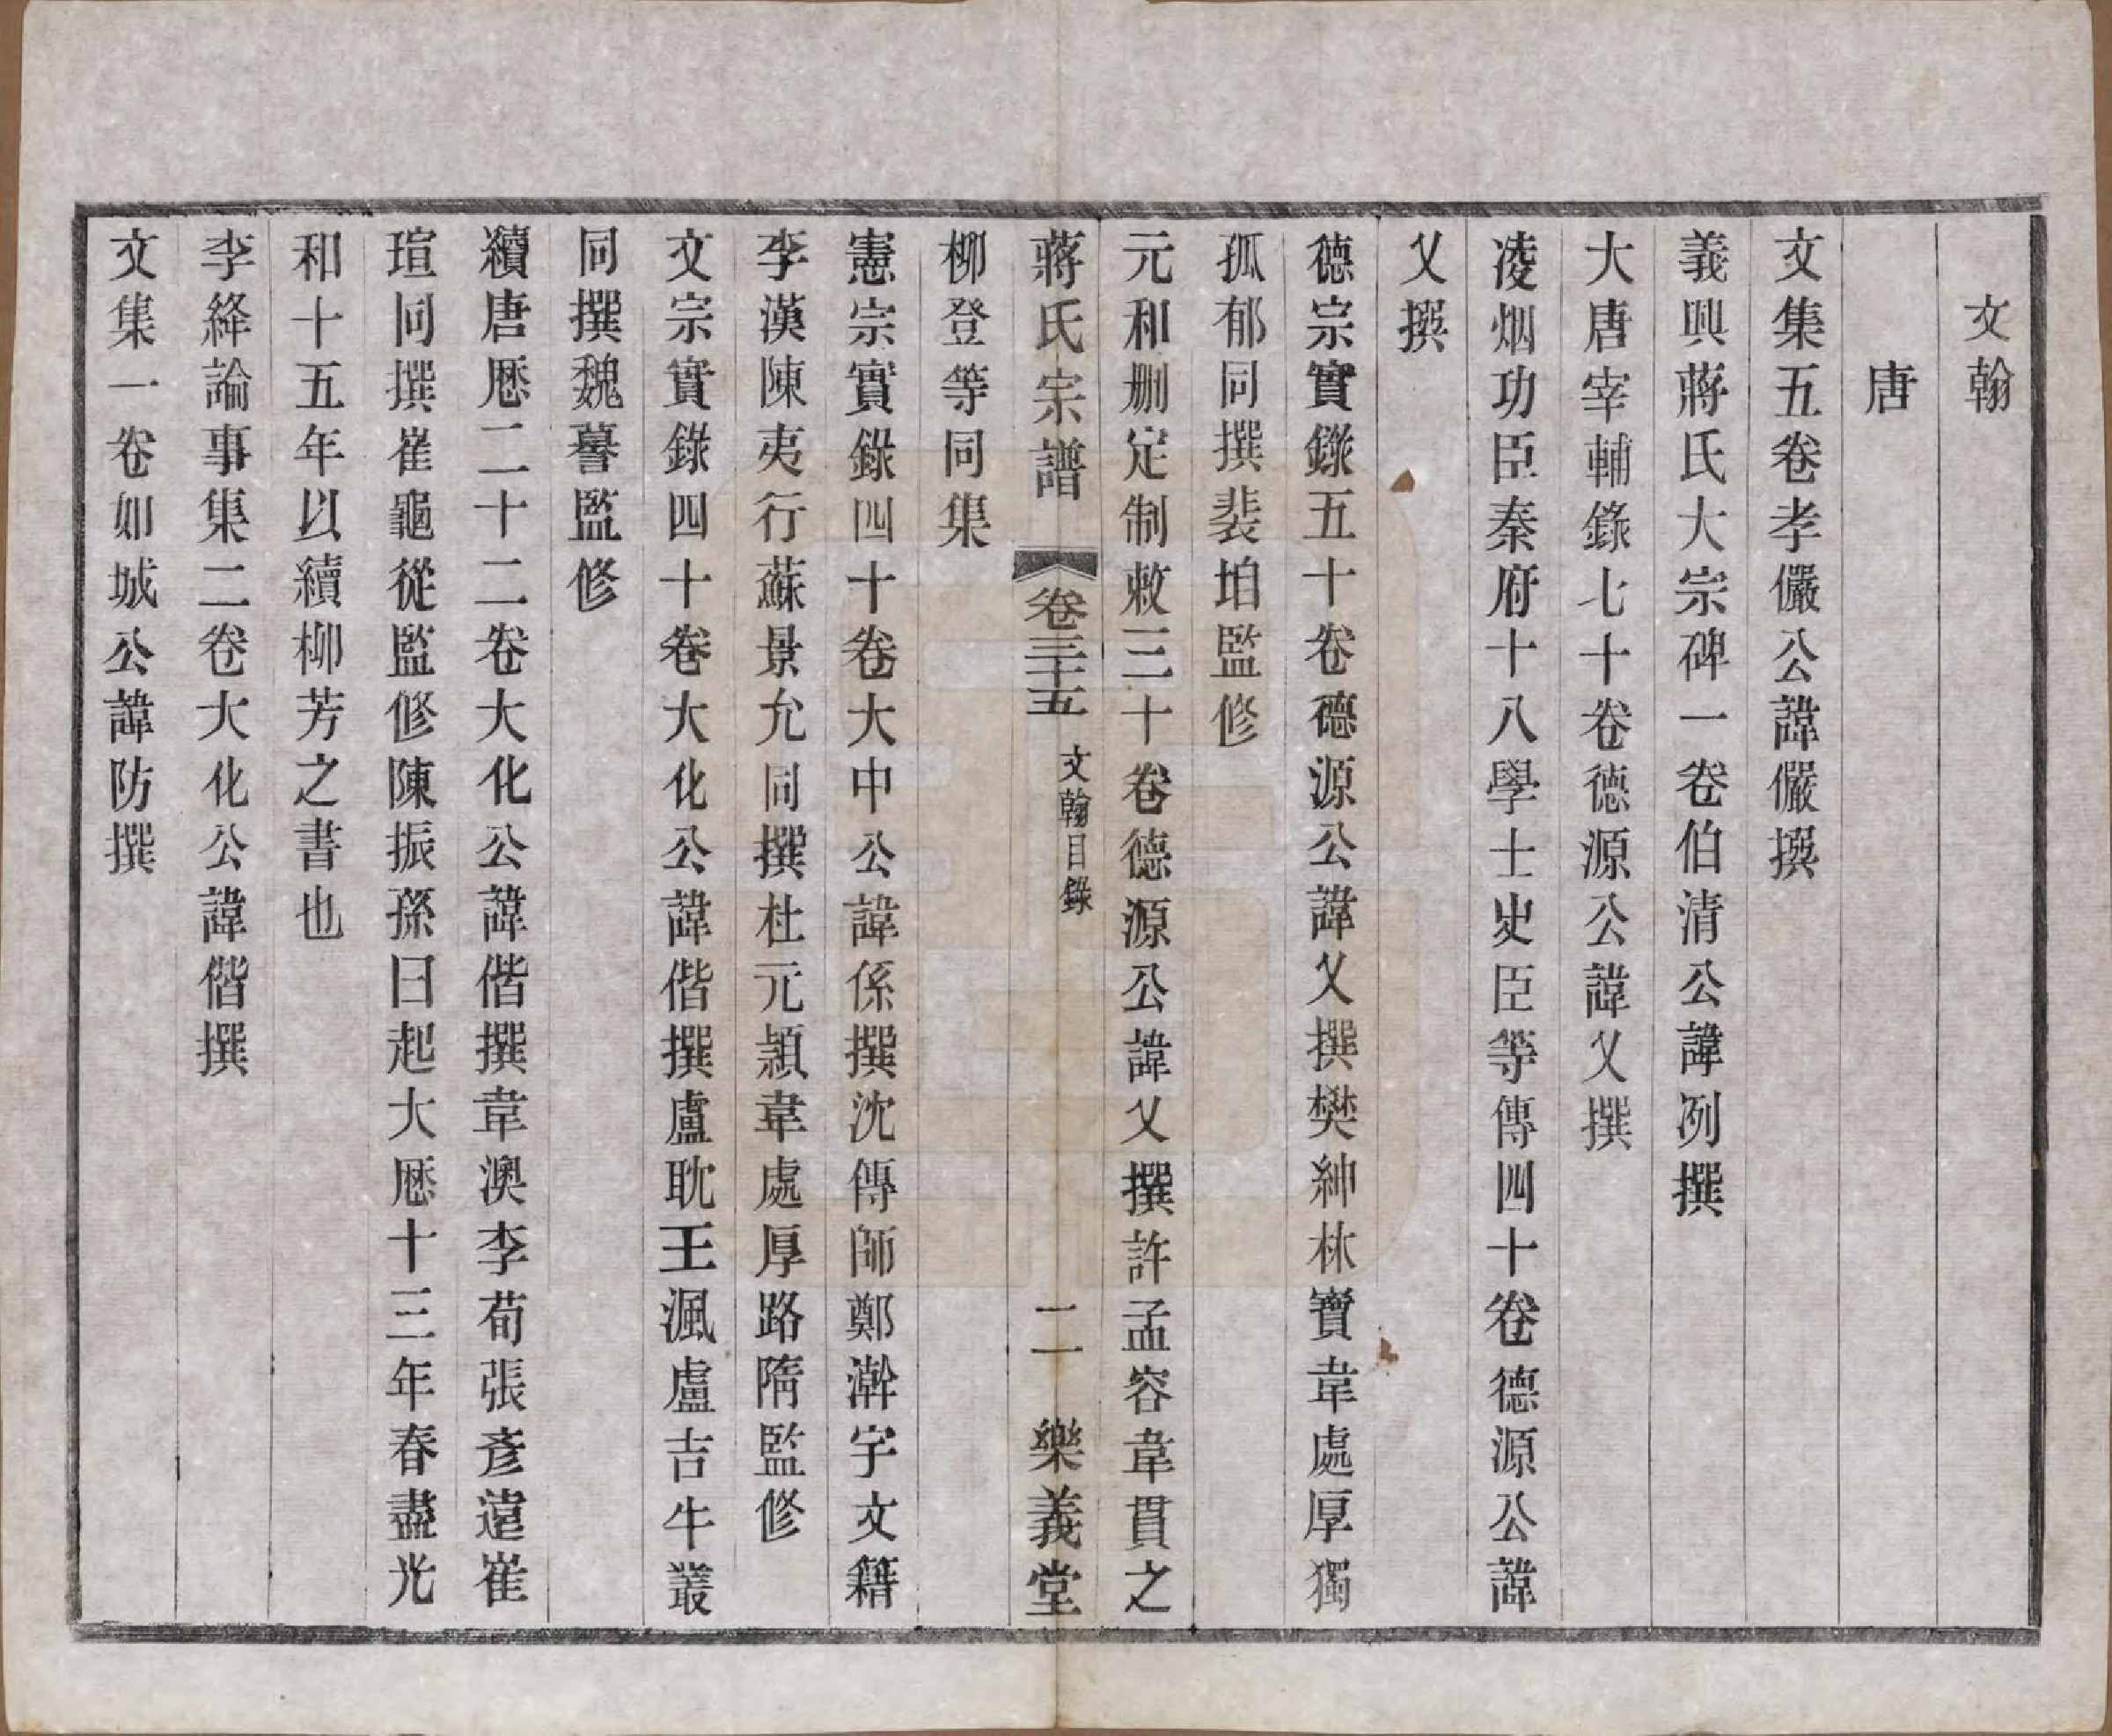 文翰
唐
文集五卷孝儼公諱儼撰
義興蔣氏大宗碑一卷伯清公諱冽撰
大唐宰輔錄七十卷德源公諱乂撰
凌烟功臣秦府十八學士史臣等傳四十卷德源公諱
乂撰
德宗實錄五十卷德源公諱乂撰樊紳林寶韋處厚獨
孤郁同撰裴垍監修
元和刪定制敕三十卷德源公諱乂撰許孟容韋貫之
蔣氏宗譜 卷三十五 文翰目錄 二 樂義堂
柳登等同集
憲宗實錄四十卷大中公諱係撰沈傳師鄭澣宇文籍
李漢陳夷行蘇景允同撰杜元頴韋處厚路隋監修
文宗實錄四十卷大化公諱偕撰盧耽王渢盧吉牛叢
同撰魏謩監修
續唐厯二十二卷大化公諱偕撰韋澳李荀張彥遠崔
瑄同撰崔龜從監修陳振孫曰起大厯十三年春盡光
和十五年以續柳芳之書也
李絳論事集二卷大化公諱偕撰
文集一卷如城公諱防撰